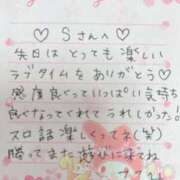 ♡ Sさんへ ♡
先日はとっても楽しい
ラブタイムをありがとう♡
感度良くっていっぱい気持ち
良くなってくれてうれしかった!
スロ話楽しくってネ(笑)
勝ってまた遊びに来てね